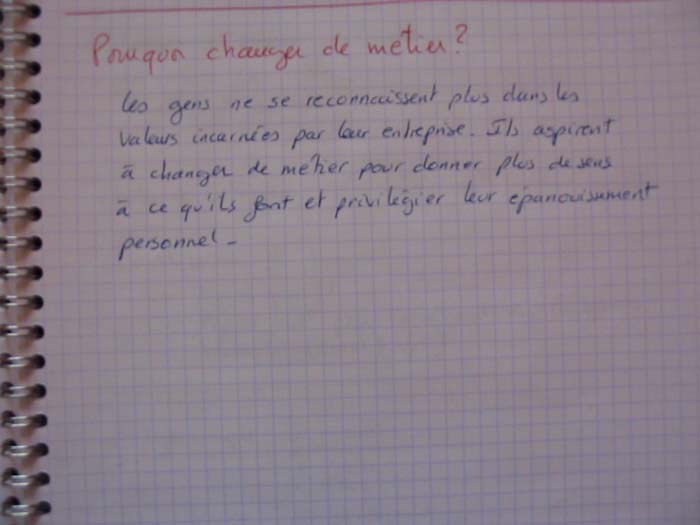 Pourquoi changer de métier?
les gens ne se reconnaissent plus dans les
valeurs incarnées par leur entreprise. Ils aspirent
à changer de métier pour donner plus de sens
à ce qu'ils font et privilégier leur épanouissement
personnel_